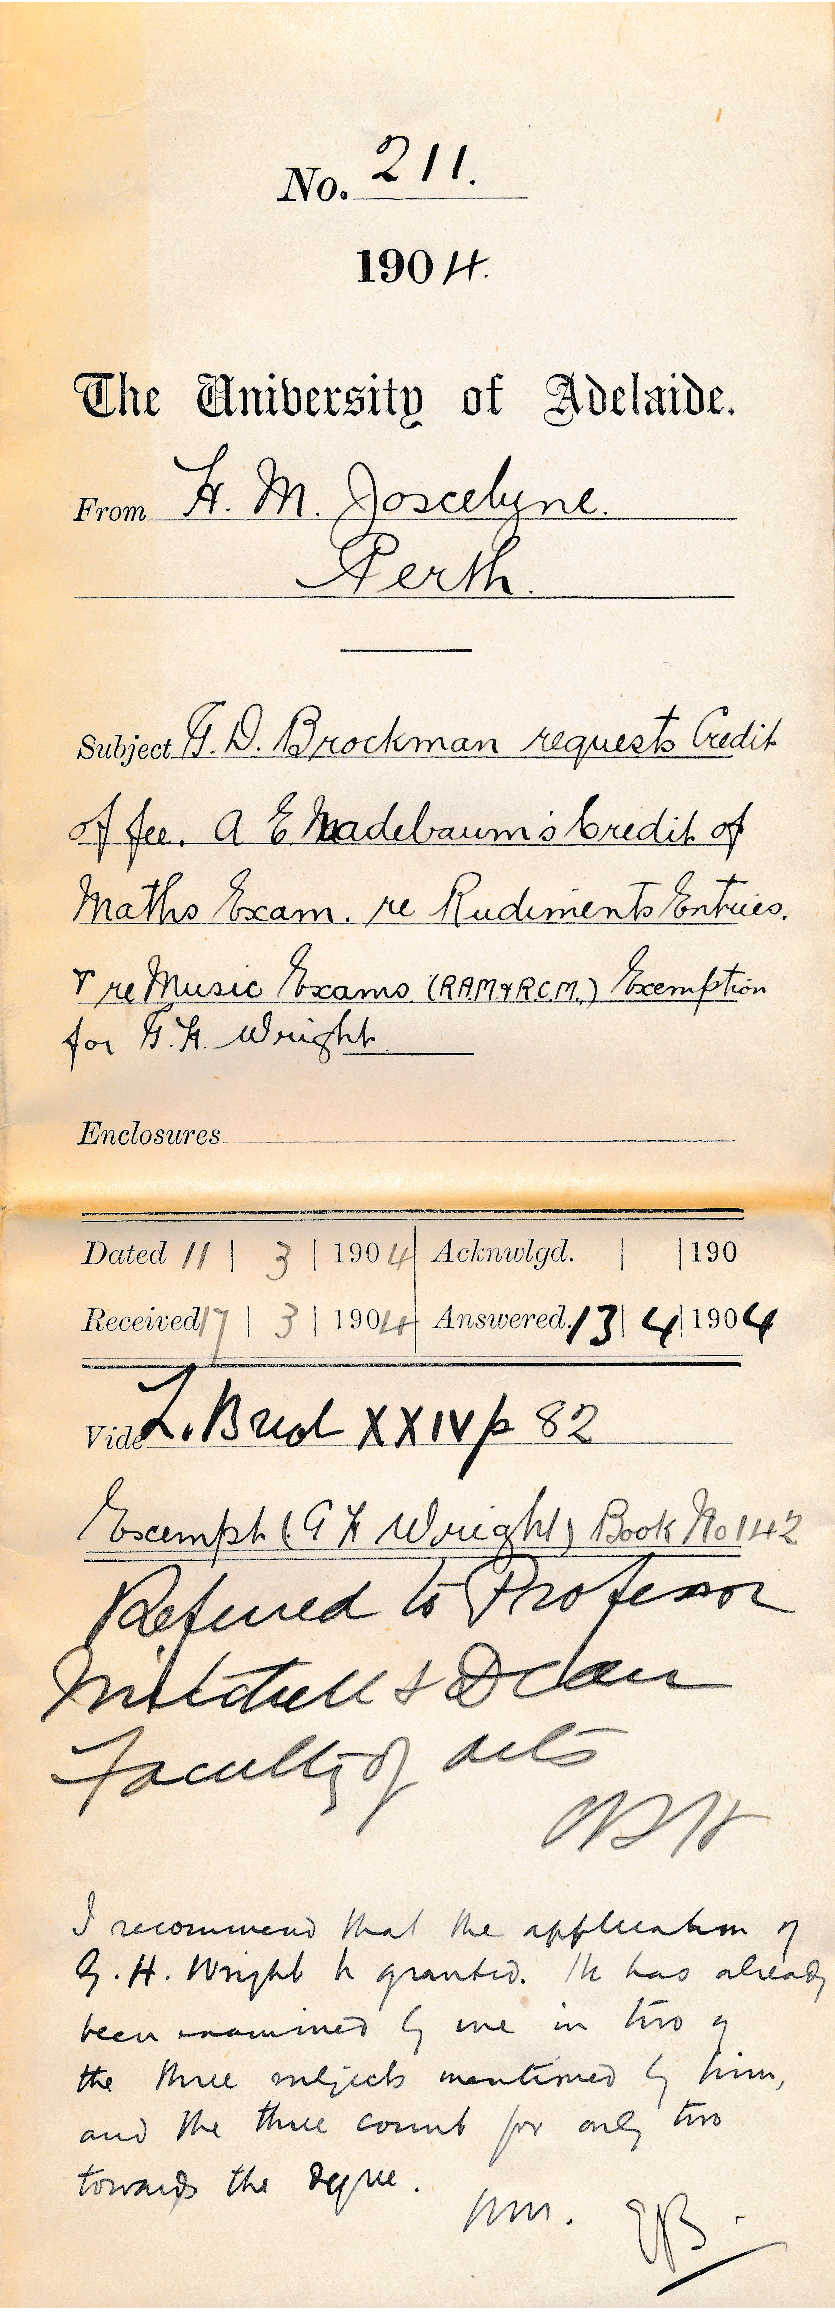 No. 211.
1904.
The University of Adelaide.
From H. M. Joscelyne.
Perth.
Subject G. D. Brockman requests Credit
of fee. A E Nadebaum's Credit of
Maths Exam. re Rudiments Entries.
& re Music Exams (RAM & R.C.M.) Exemption
for G. H. Wright
Enclosures
Dated 11 | 3 | 1904 Acknwlgd. | | 190
Received 17 | 3 | 1904 Answered. 13 | 4 | 1904
Vide L. Book XXIV p 82
Exempt (G H Wright) Book No 142
Referred to Professor
Mitchell & Dean
Faculty of Arts
CRH
I recommend that the application of
G. H. Wright be granted. He has already
been examined by me in two of
the three subjects mentioned by him,
and the three count for only two
towards the degree.
WM. EB.